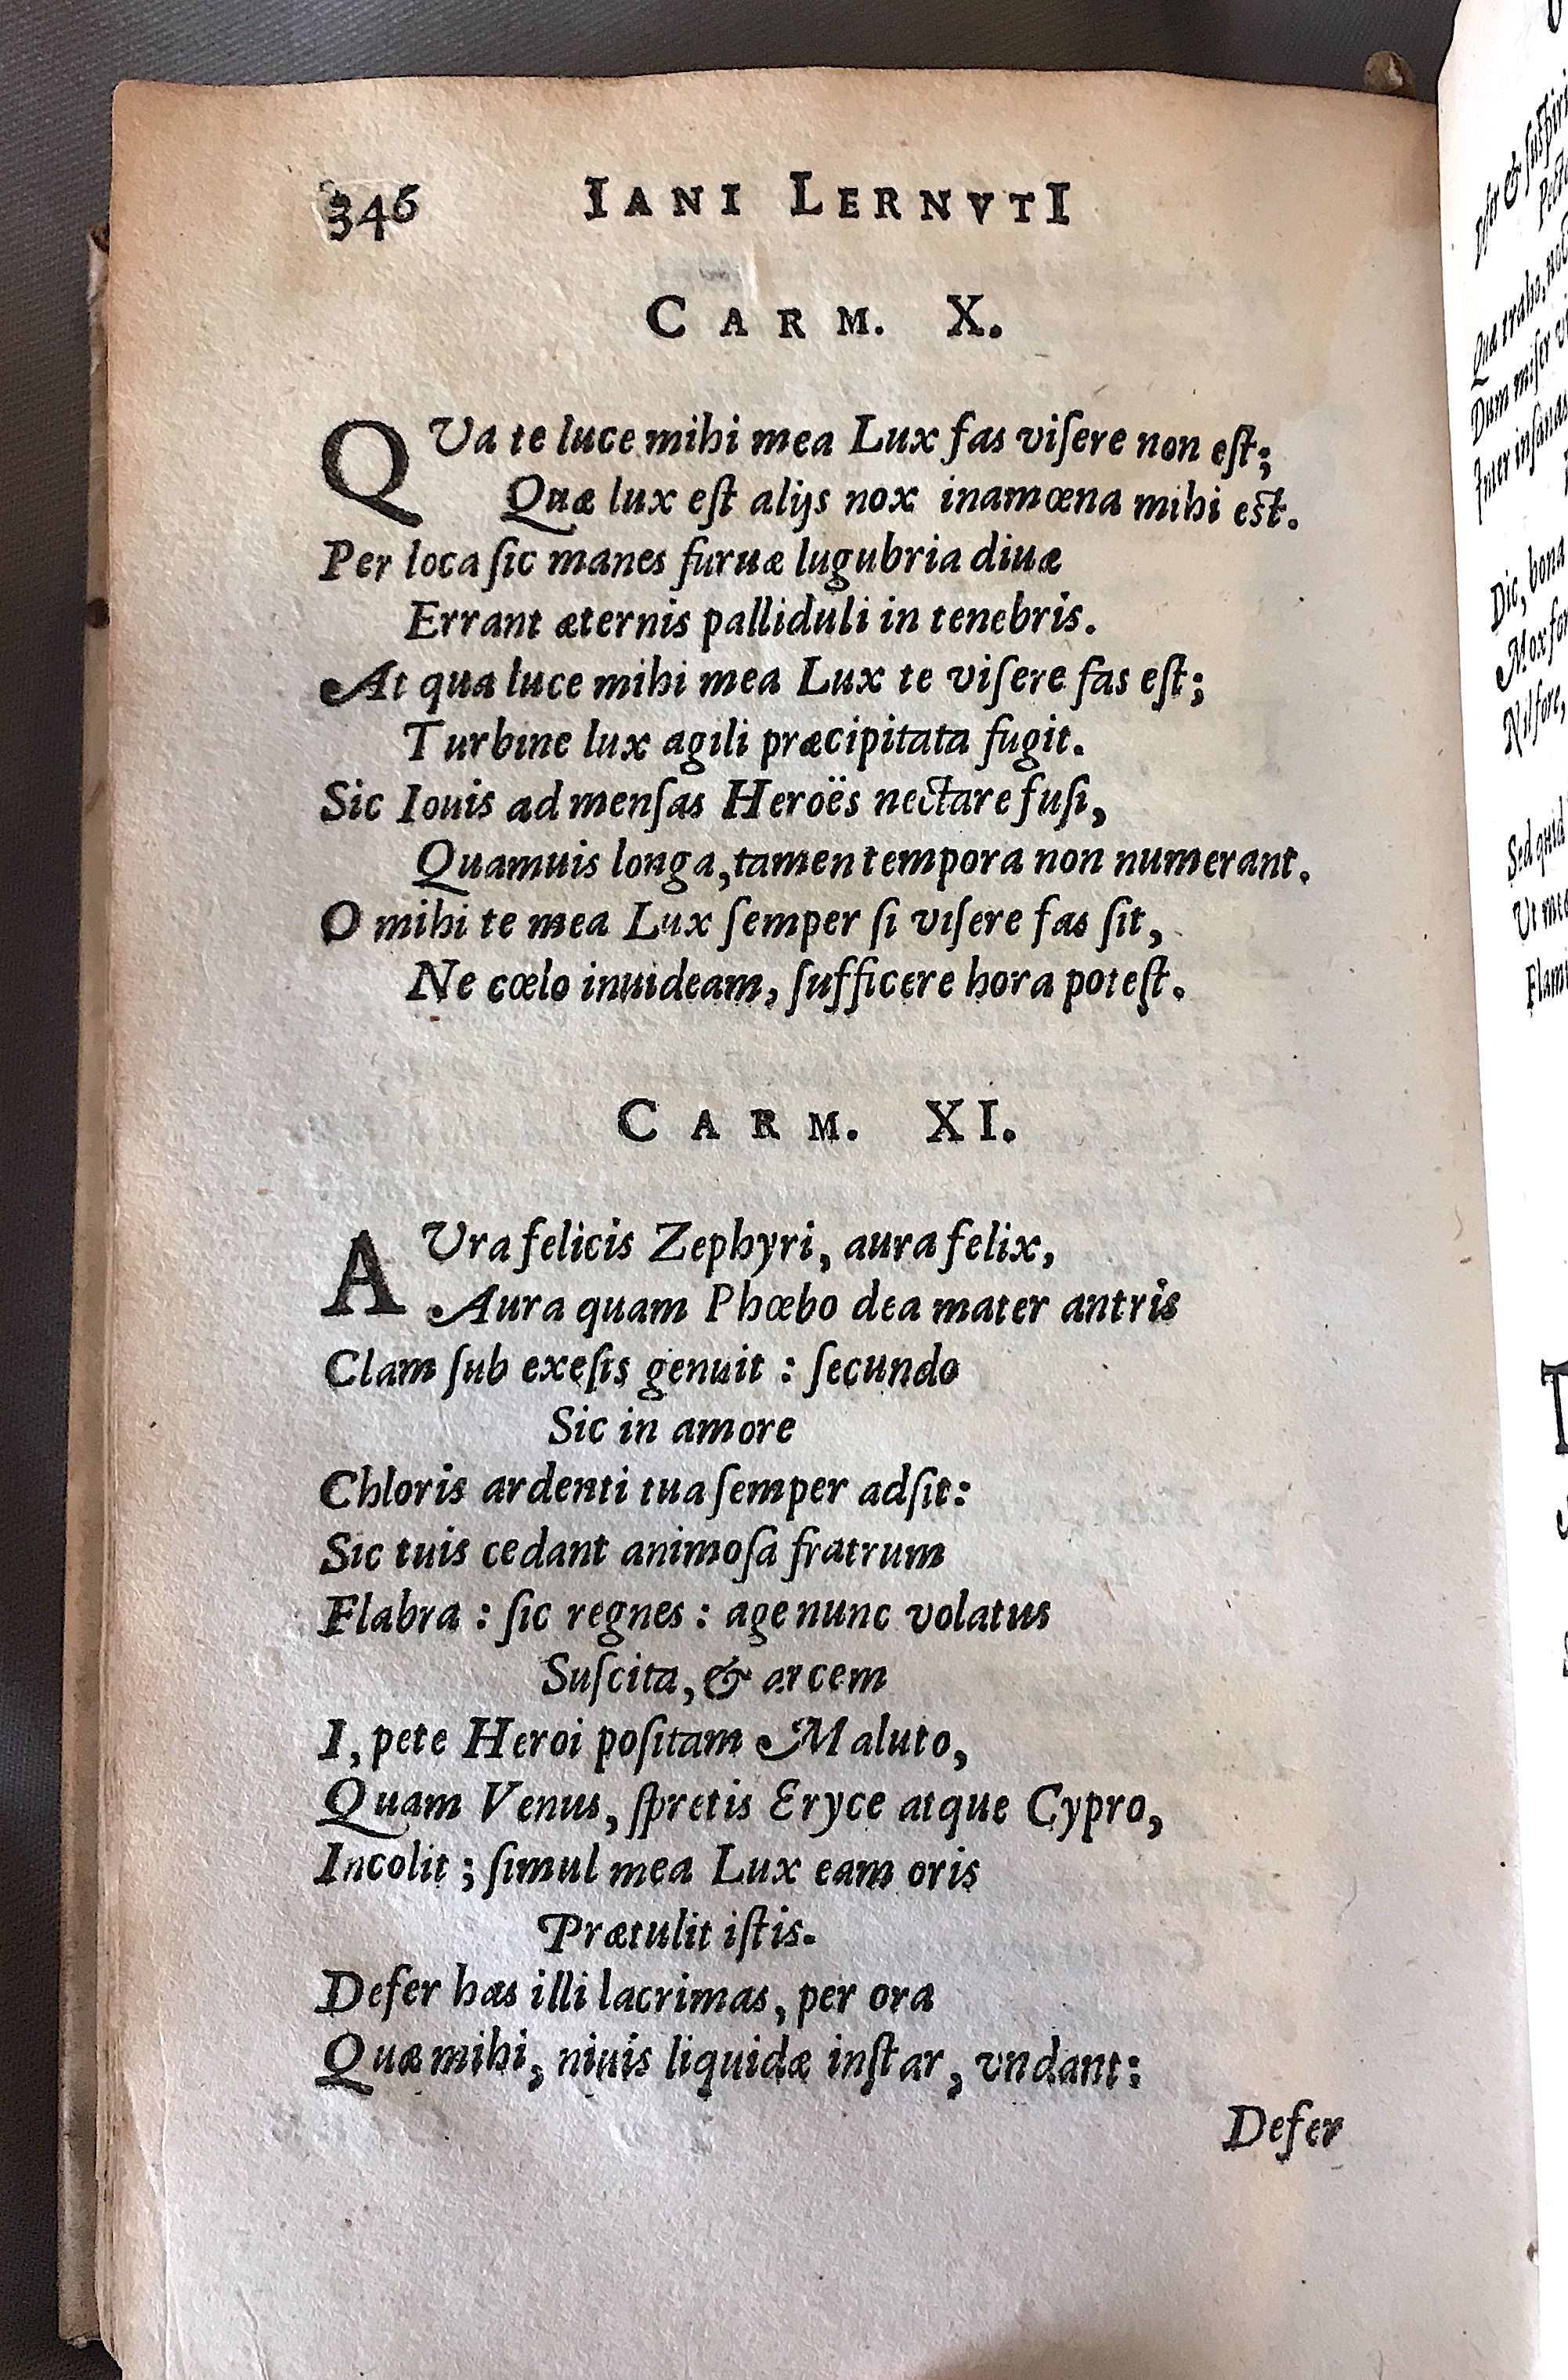 346 IANI LERNVTI
CARM. X.
QVa te luce mihi mea Lux fas viſere non eſt;
Quæ lux eſt alijs nox inamœna mihi eſt.
Per loca ſic manes furuæ lugubria diuæ
Errant æternis palliduli in tenebris.
At qua luce mihi mea Lux te viſere fas eſt;
Turbine lux agili præcipitata fugit.
Sic Iouis ad menſas Heroës nectare fuſi,
Quamuis longa, tamen tempora non numerant.
O mihi te mea Lux ſemper ſi viſere fas ſit,
Ne cœlo inuideam, ſufficere hora poteſt.
CARM. XI.
AVra felicis Zephyri, aura felix,
Aura quam Phœbo dea mater antris
Clam ſub exeſis genuit : ſecundo
Sic in amore
Chloris ardenti tua ſemper adſit:
Sic tuis cedant animoſa fratrum
Flabra : ſic regnes : age nunc volatus
Suſcita, & arcem
I, pete Heroi poſitam Maluto,
Quam Venus, ſpretis Eryce atque Cypro,
Incolit ; ſimul mea Lux eam oris
Prætulit iſtis.
Defer has illi lacrimas, per ora
Quæ mihi, niuis liquidæ inſtar, vndant:
Defer
&
Quæ traho,
Dum miſer
Inter inſanas
Dic, bona
Mox
Nil fore,
Sed quid
Vt